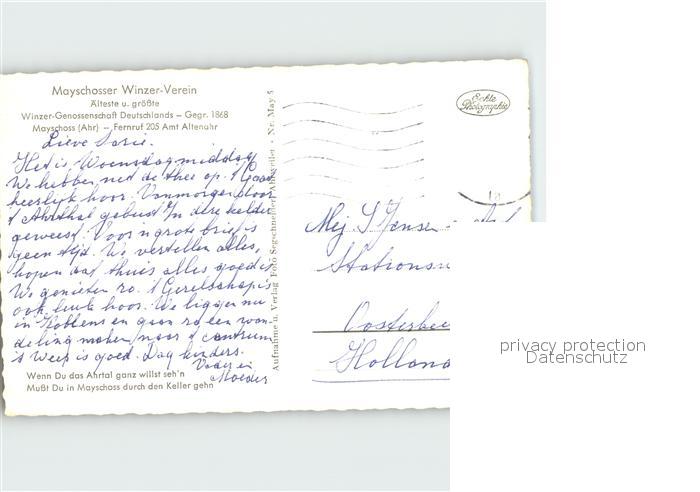 Mayschosser Winzer-Verein
Älteste u. größte
Winzer-Genossenschaft Deutschlands – Gegr. 1868
Mayschoss (Ahr) – Fernruf 205 Amt Altenahr
Lieve
Het is Woensdagmiddag
We hebben net de thee op. 't Gaat
heerlijk hoor. Vanmorgen door
't Ahrthal gebust In deze kelder
geweest. Voor 'n grote brief is
geen tijd. We vertellen alles,
hopen dat thuis alles goed is
We genieten zo. 't Gezelschap is
ook leuk hoor. We liggen nu
in Koblens en gaan zo een wan
deling maken naar 't centrum
't Weer is goed. Dag kinders.
Vader en
Moeder
Wenn Du das Ahrtal ganz willst seh'n
Mußt Du in Mayschoss durch den Keller gehn
Aufnahme u. Verlag Foto Ahrweiler • Nr. May 5
Echte
Photographie
Mej Jansen
Stations
Oosterbee
Holland
privacy protection
Datenschutz